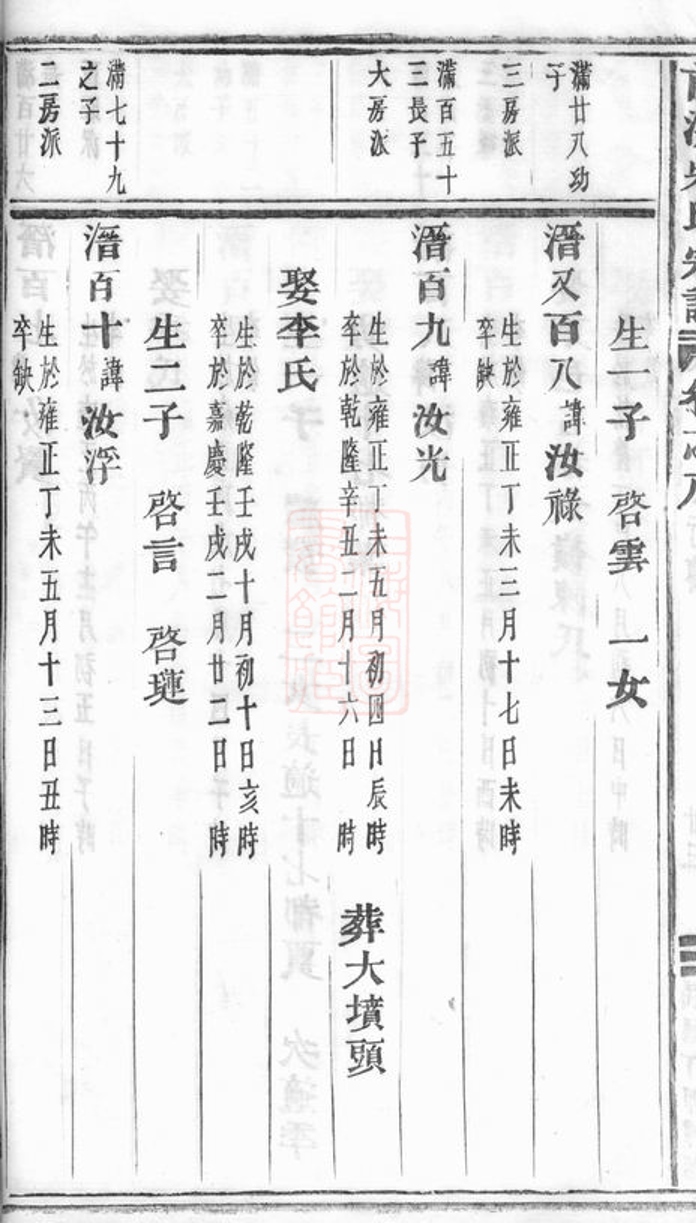 生一子 啓雲 一女
滿廿八功
子
三房派
溍又百八諱汝祿
生於雍正丁未三月十七日未時
卒缺
滿百五十
三長子
大房派
溍百九諱汝光
生於雍正丁未五月初四日辰時
卒於乾隆辛丑二月十六日 時 葬大墳頭
娶李氏
生於乾隆壬戌十月初十日亥時
卒於嘉慶壬戌二月廿二日 時
生二子 啓言 啓璉
滿七十九
之子
二房派
溍百十諱汝浮
生於雍正丁未五月十三日丑時
卒缺